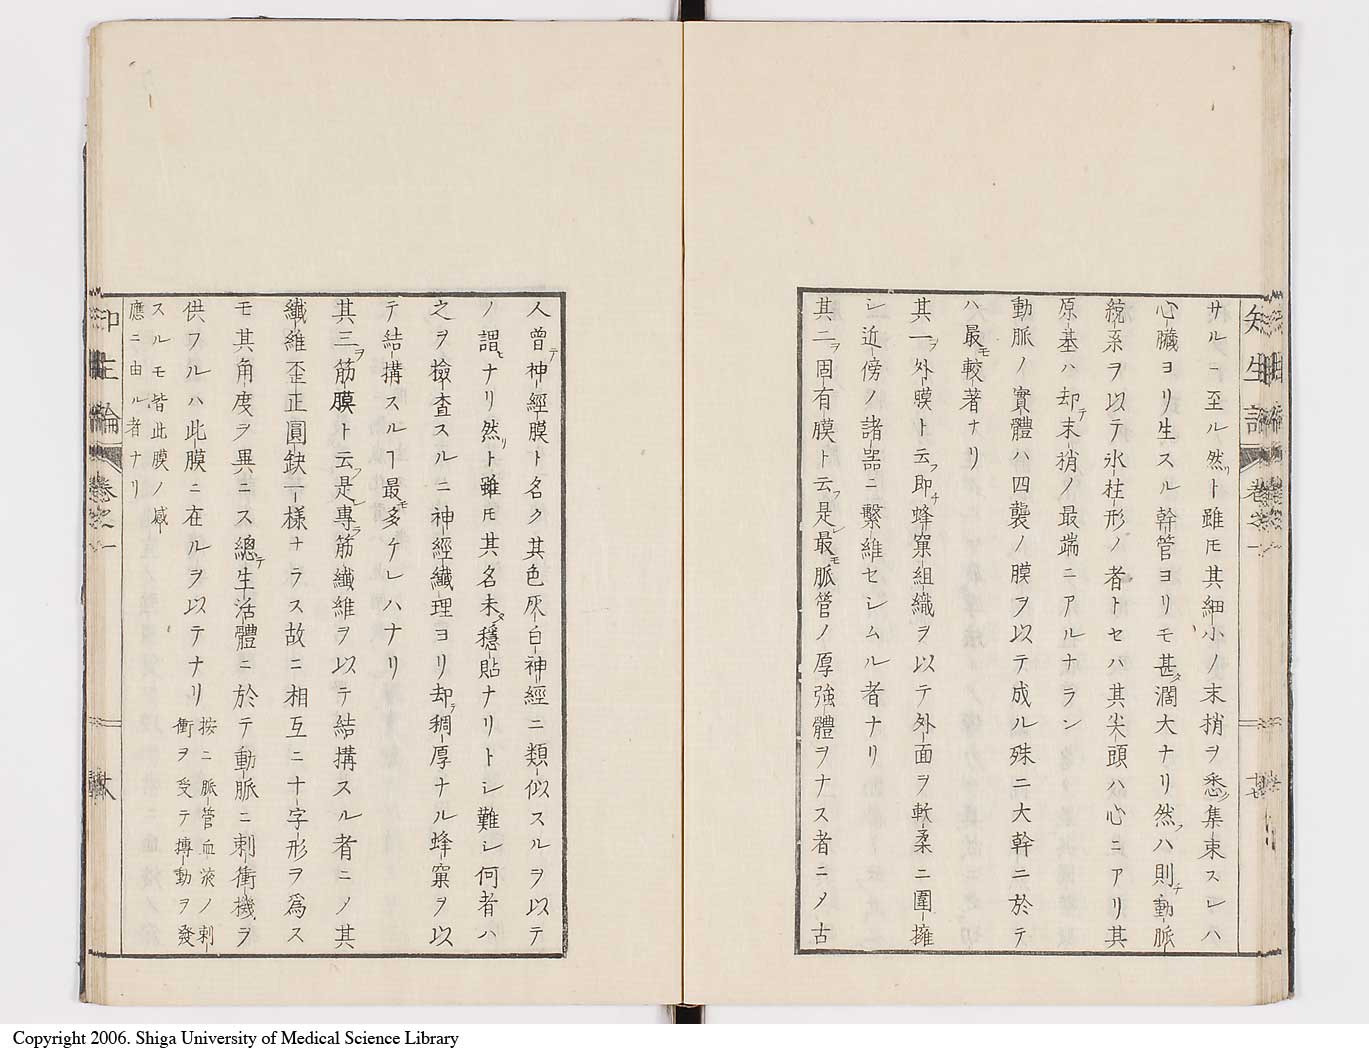 サルニ至ル然リト雖𪜈其細小ノ末梢ヲ悉ク集束スレハ
心臓ヨリ生スル幹管ヨリモ甚タ濶大ナリ然ラハ則チ動脈
統系ヲ以テ氷柱形ノ者トセハ其尖頭ハ心ニアリ其
原基ハ却テ末梢ノ最端ニアルナラン
動脈ノ實體ハ四襲ノ膜ヲ以テ成ル殊ニ大幹ニ於テ
ハ最モ較著ナリ
其一ヲ外膜ト云フ即チ蜂窠組織ヲ以テ外面ヲ軟柔ニ圍擁
シ近傍ノ諸噐ニ繫維セシムル者ナリ
其二ヲ固有膜ト云フ是レ最モ脈管ノ厚強體ヲナス者ニノ古
人曾テ神經膜ト名ク其色灰白神經ニ類似スルヲ以テ
ノ謂ヒナリ然リト雖𪜈其名未タ穩貼ナリトシ難シ何者ハ
之ヲ檢査スルニ神經纖理ヨリ却テ稠厚ナル蜂窠ヲ以
テ結搆スルヿ最モ多ケレハナリ
其三ヲ筋膜ト云フ是レ專ラ筋纖維ヲ以テ結搆スル者ニノ其
纖維歪正圓缺一樣ナラス故ニ相互ニ十字形ヲ爲ス
モ其角度ヲ異ニス總テ生活體ニ於テ動脈ニ刺衝機ヲ
供フルハ此膜ニ在ルヲ以テナリ 按ニ脈管血液ノ刺
衝ヲ受テ摶動ヲ發
スルモ皆此膜ノ感
應ニ由ル者ナリ